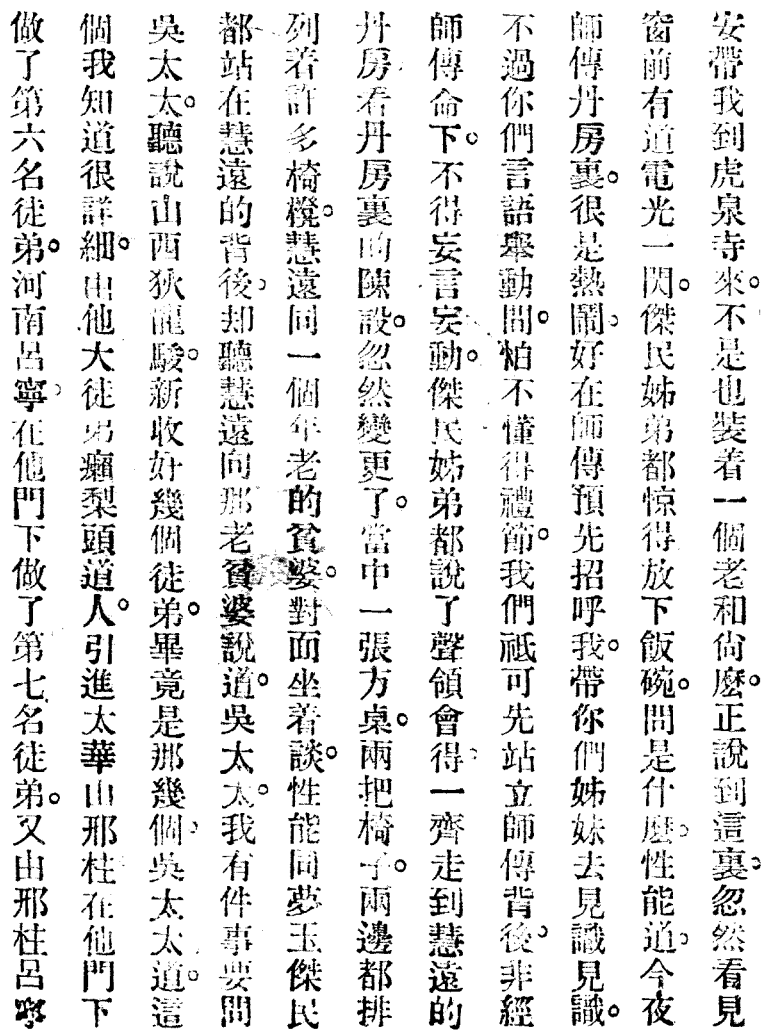 安帶我到虎泉寺來。不是也裝着一個老和尙麽。正說到這裏。忽然看見
窗前有道電光一閃。傑民姊弟都惊得放下飯碗。問是什麽。性能道。今夜
師傳丹房裏。很是熱鬧。好在師傳預先招呼我。帶你們姊妹去見識見識。
不過你們言語舉動間。怕不懂得禮節。我們祗可先站立師傳背後。非經
師傳命下。不得妄言妄動。傑民姊弟都說了聲領會得。一齊走到慧遠的
丹房看丹房裏的陳設。忽然變更了。當中一張方桌。兩把椅子。兩邊都排
列着許多椅櫈。慧遠同一個年老的貧婆。對面坐着談。性能同夢玉傑民
都站在慧遠的背後。却聽慧遠向那老貧婆說道。吳太太。我有件事要問
吳太太。聽說山西狄龍駿。新收好幾個徒弟。畢竟是那幾個。吳太太道。這
個我知道很詳細。由他大徒弟癩梨頭道人。引進太華山邢柱在他門下
做了第六名徒弟。河南呂寧。在他門下做了第七名徒弟。又由邢柱呂寧